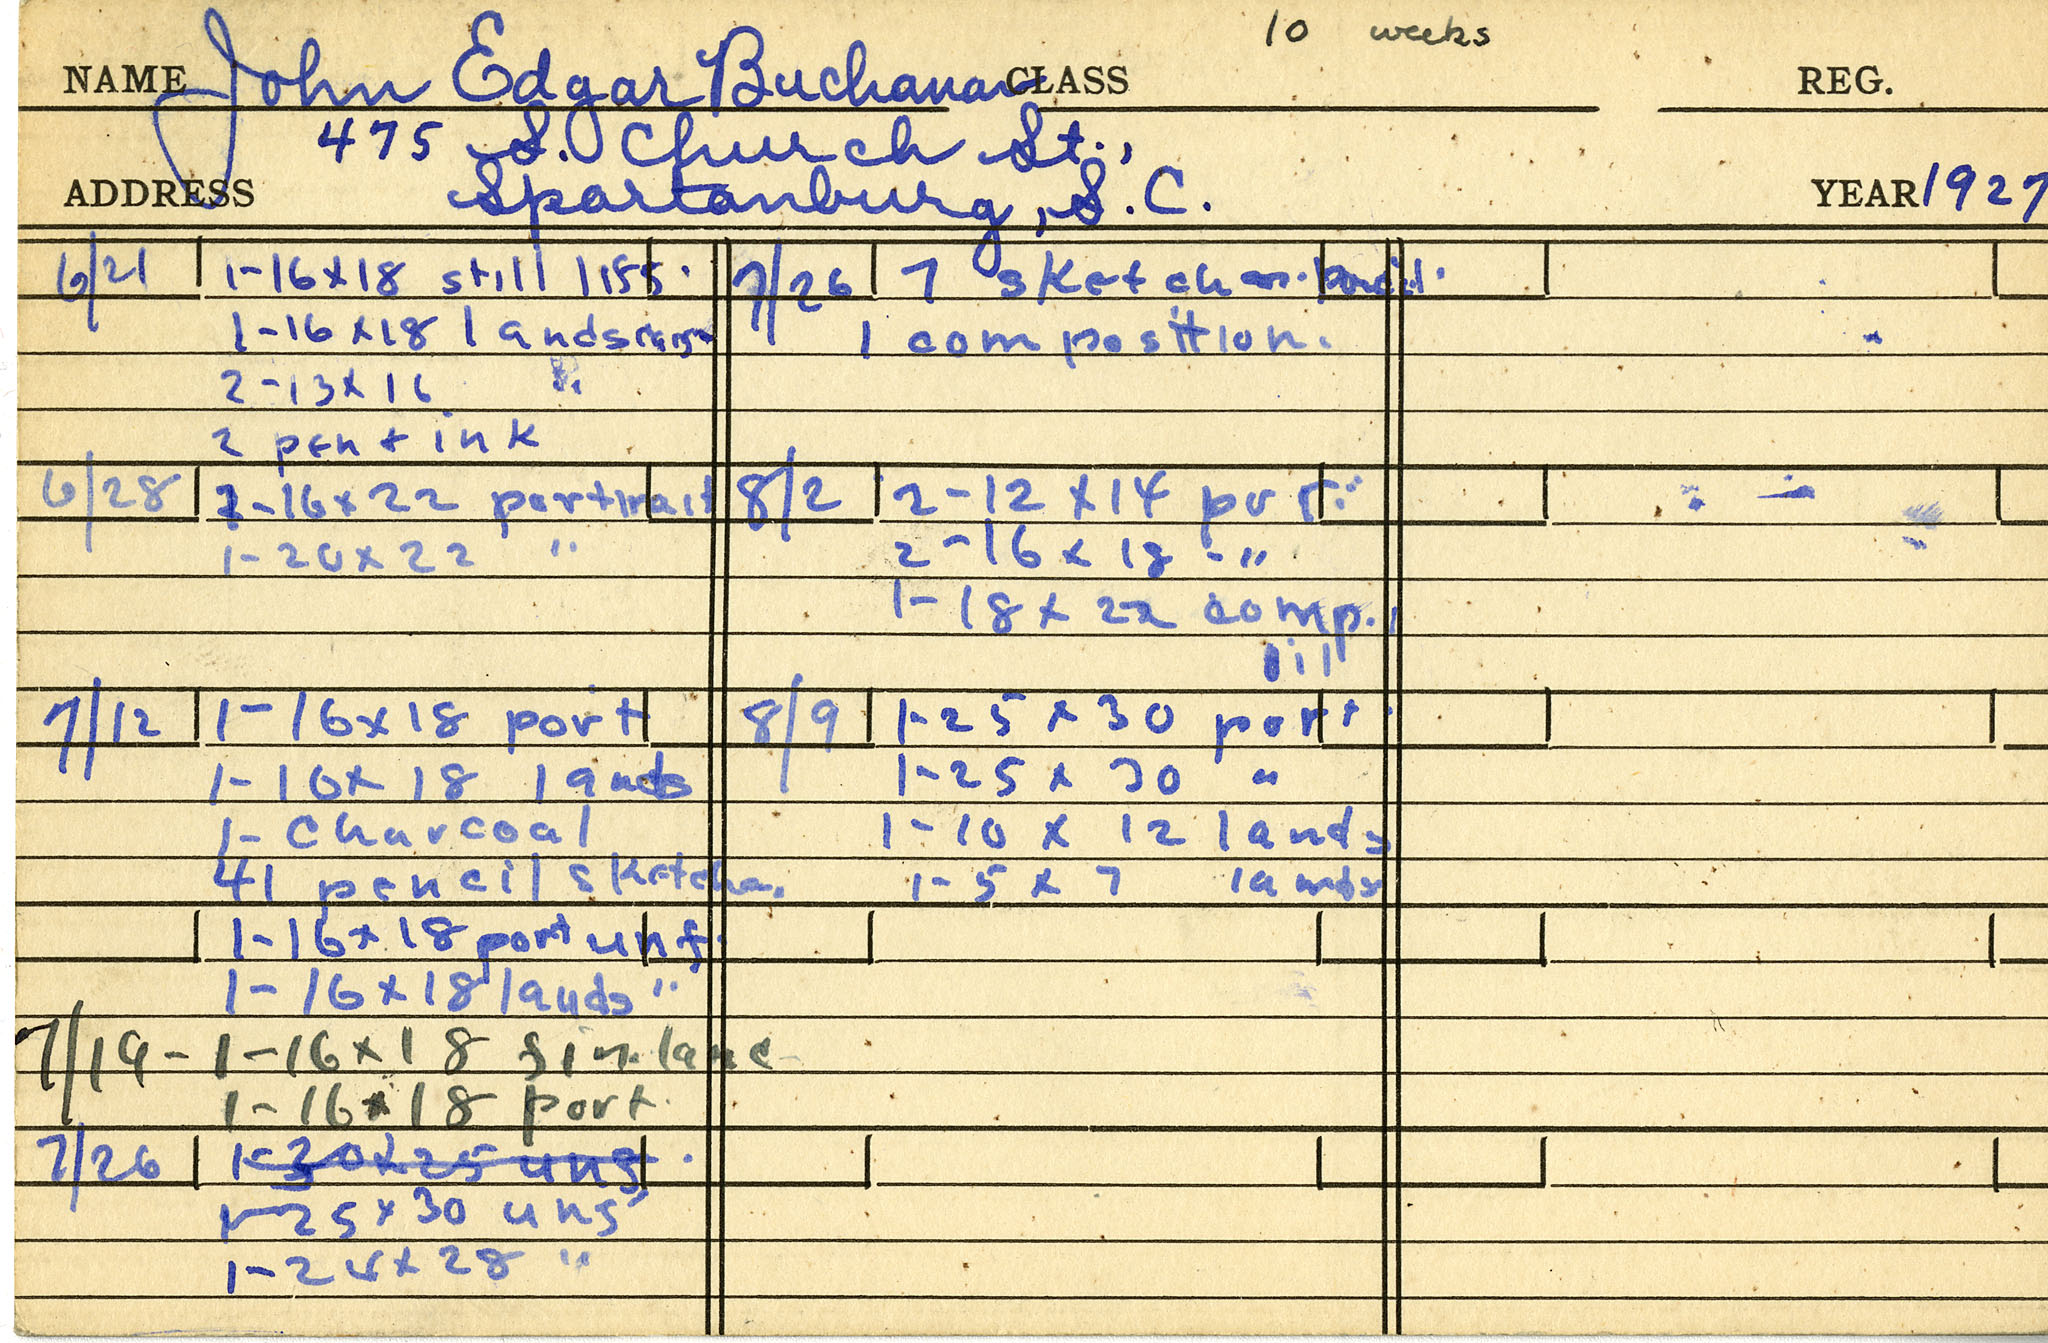 10 weeks
NAME John Edgar Buchanan CLASS REG.
475 S. Church St.,
ADDRESS Spartanburg, S.C. YEAR 1927
6/21 1-16x18 still
1-16x18
2-13x16 "
2 pen + ink
6/28 -16x22 portrait
1-20x22 "
7/12 1-16x18 port
1-16x18 lands
1-charcoal
41 pencil
1-16x18 port unf.
1-16x18 lands "
7/19-1-16x18
1-16x18 port.
7/26 1-30x25 unf.
1-25x30 unf
1-24x28 "
7/26 7
1 composition.
8/2 2-12x14 port.
2-16x18 - "
1-18x22 comp.,
8/9 1-25x30 port.
1-25x30 "
1-10x12 lands
1-5x7 lands